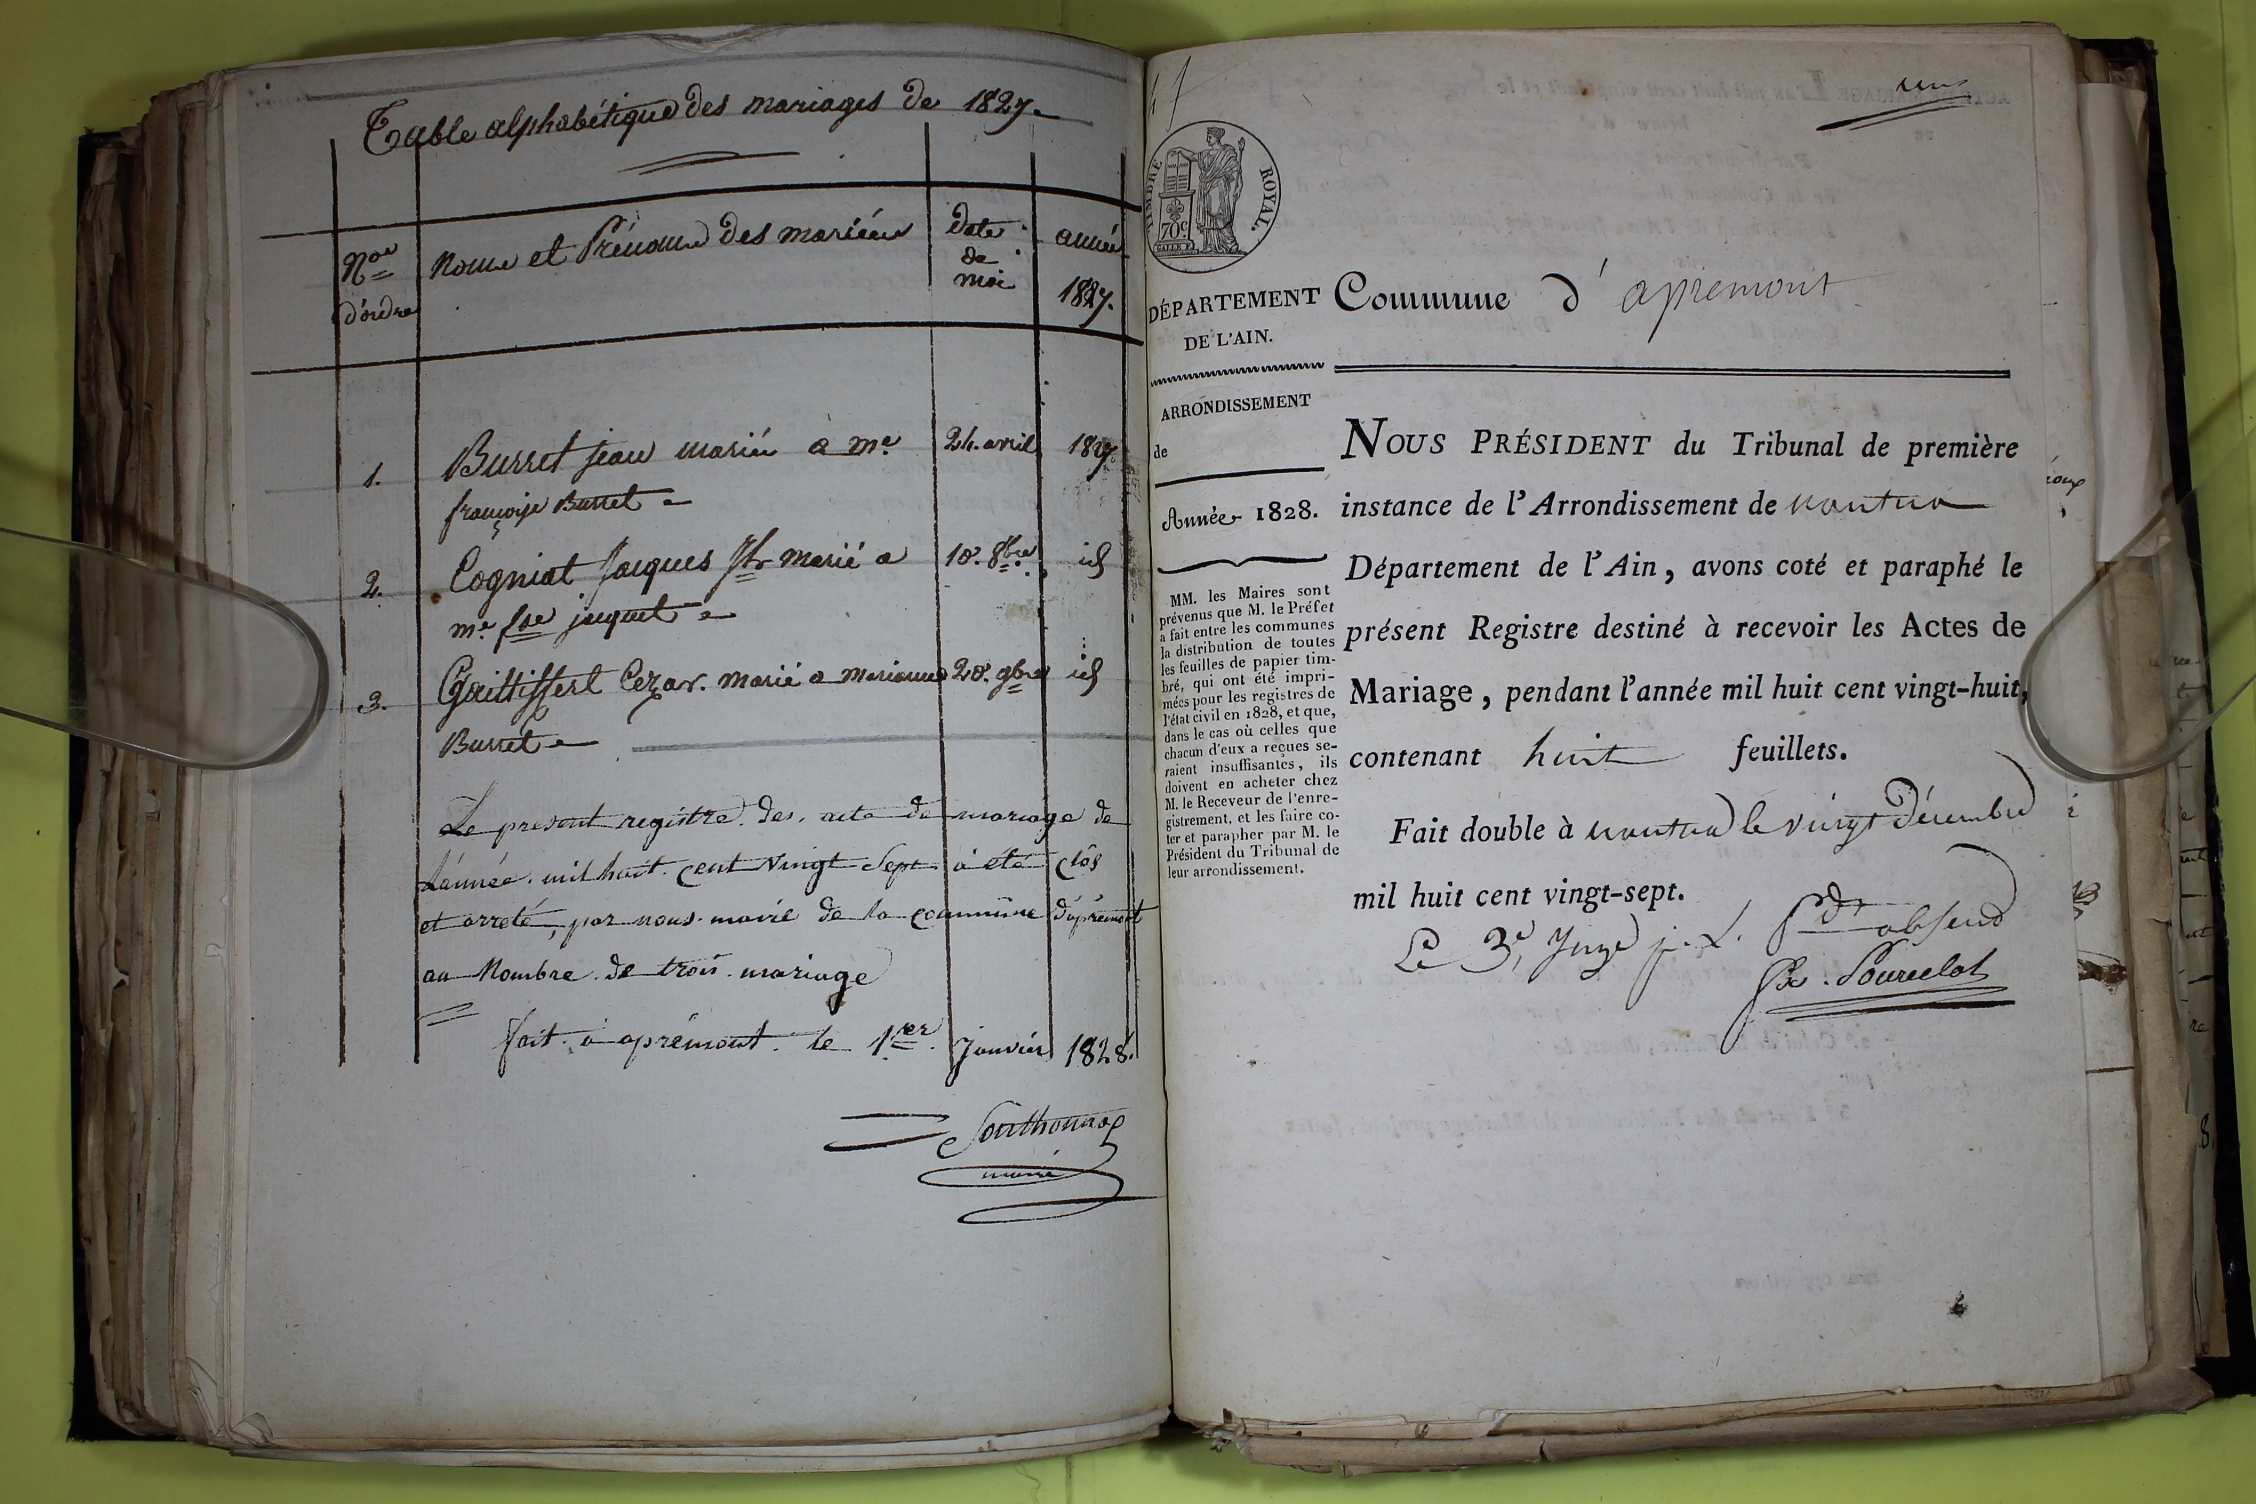 Table alphabétique des mariages de 1827.
Nos
d'ordre
Noms et Prénoms des mariées
date
de
moi
année
1827.
1. Burret jean mariée à me 24. avril 1827
françoise Burret
2. Cogniat Jacques Jh marié a 18. 8bre id
me fse jacquet
3. Cezar. marié a marianne 28. 9bre id
Burret
Le present registre des acte de mariage de
l'année mil huit cent vingt Sept a été clôs
et arreté, par nous maire de la commune d'apremont
au Nombre de trois mariage
fait à apremont le 1er Janvier 1828.
Southonnax
maire
un
TIMBRE ROYAL.
70c.
DÉPARTEMENT
DE L'AIN.
Commune d'apremont
ARRONDISSEMENT
de
Année 1828.
MM. les Maires sont
prévenus que M. le Préfet
a fait entre les communes
la distribution de toutes
les feuilles de papier tim-
bré, qui ont été impri-
mées pour les registres de
l'état civil en 1828, et que,
dans le cas où celles que
chacun d'eux a reçues se-
raient insuffisantes, ils
doivent en acheter chez
M. le Receveur de l'enre-
gistrement, et les faire co-
ter et parapher par M. le
Président du Tribunal de
leur arrondissement.
NOUS PRÉSIDENT du Tribunal de première
instance de l'Arrondissement de nantua
Département de l'Ain, avons coté et paraphé le
présent Registre destiné à recevoir les Actes de
Mariage, pendant l'année mil huit cent vingt-huit,
contenant huit feuillets.
Fait double à nantua le vingt Décembre
mil huit cent vingt-sept.
Le 3e Juge p. L. Pdt absend